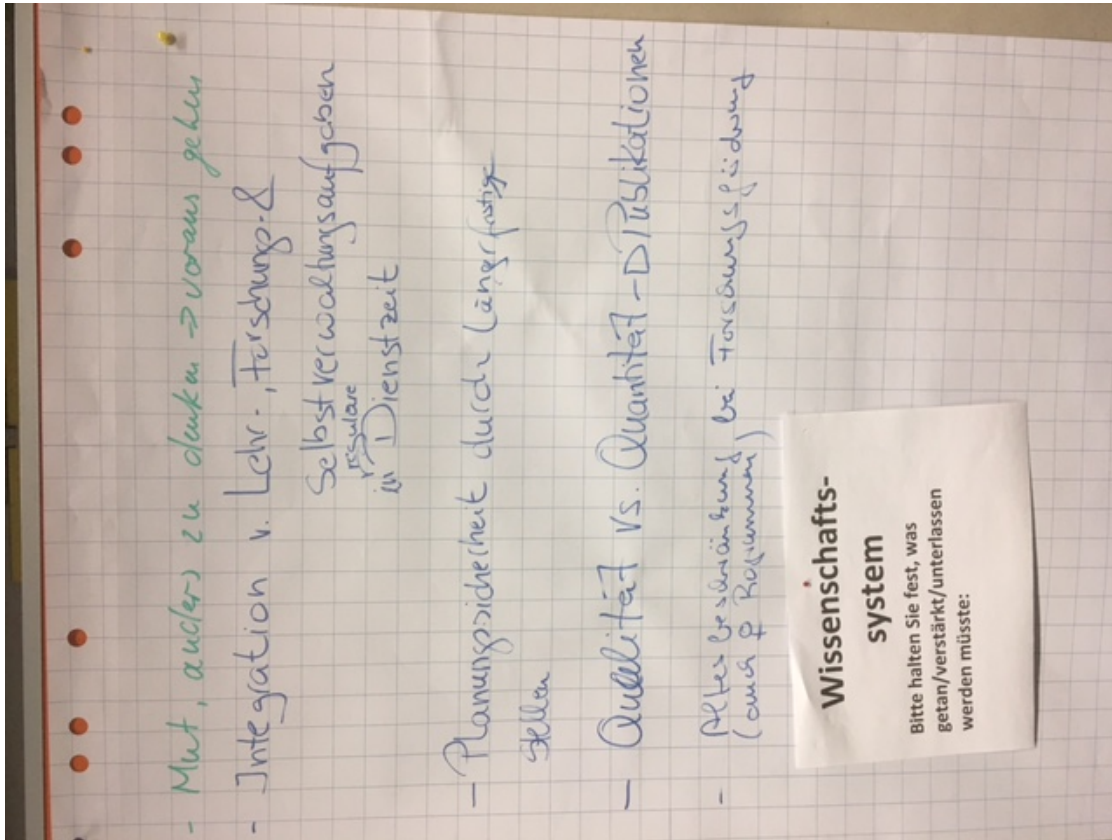 - Mut, anders zu denken -> voraus gehen
- Integration v. Lehr-, Forschungs- &
Selbstverwaltungsaufgaben
reguläre
in Dienstzeit
- Planungssicherheit durch längerfristige
Stellen
- Qualität vs. Quantität - D Publikationen
- Altersbeschränkung bei Forschungsförderung
(auch ♀ Programmen)
Wissenschafts-
system
Bitte halten Sie fest, was
getan/verstärkt/unterlassen
werden müsste: